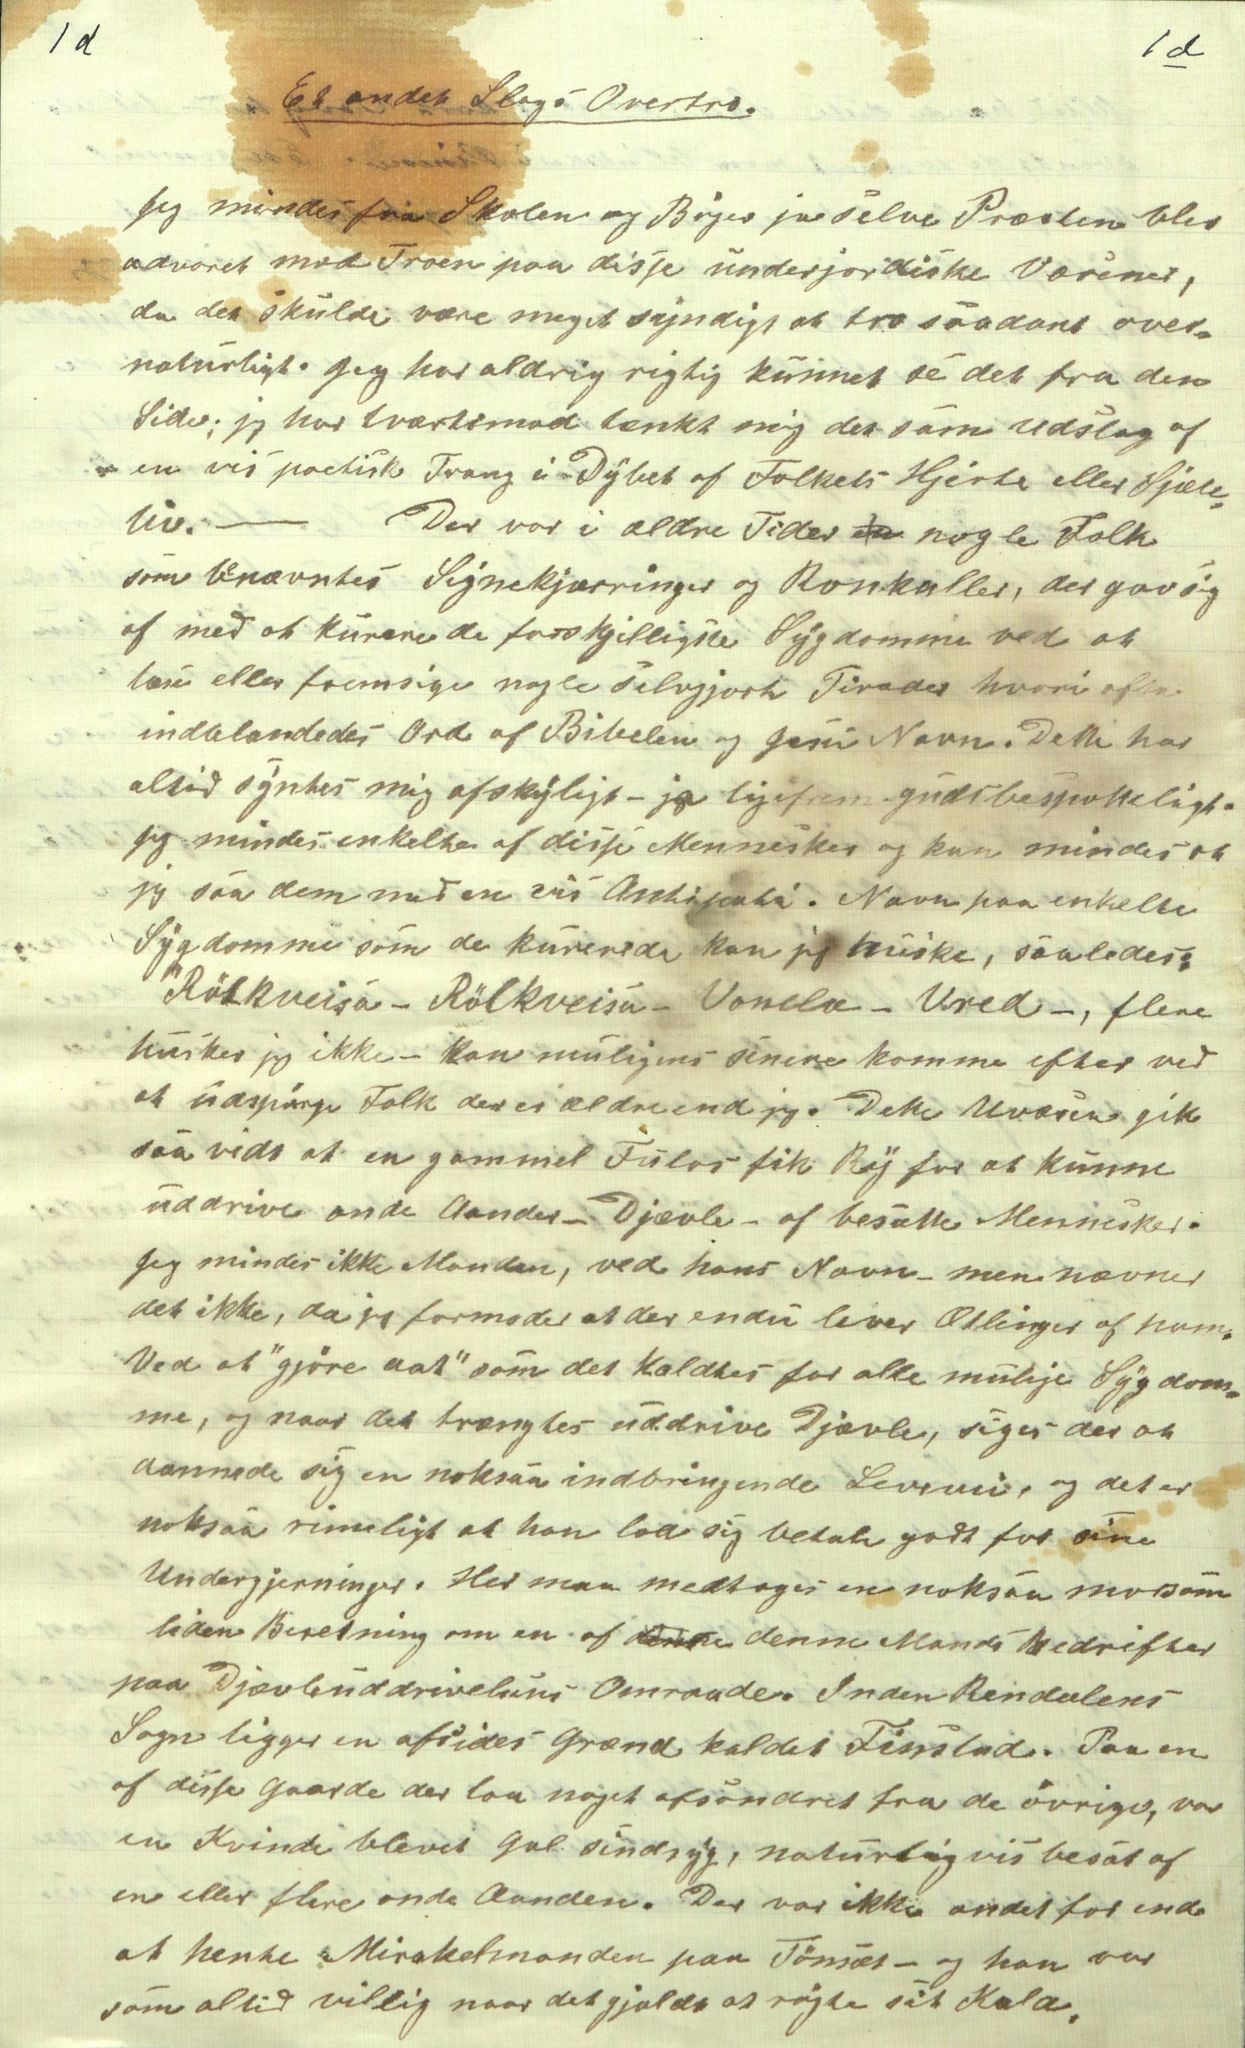 1d
1d
Et andet Slags Overtro.
Jeg mindes fra Skolen og Böger ja selve Præsten blev
advaret mod Troen paa disse underjordiske Væsener,
da det skulde være meget syndigt at tro saadant over-
naturligt. Jeg har aldrig rigtig kunnet se det fra den
Side; jeg har tvœrtimod tænkt mig det som Udslag af
en vis poetisk Trang i Dybet af Folkets Hjerte eller Sjæle-
liv. — Der var i ældre Tider en nogle Folk
som benævntes Signekjærringer og Ronkaller, der gav sig
af med at kurere de forskjelligste Sygdomme ved at
læse eller fremsige nogle selvgjorte Tirader hvori ofte
indblandedes Ord af Bibelen og Jesu Navn. Dette har
altid syntes mig afskyligt - ja ligefrem gudsbespotteligt.
Jeg mindes enkelte af disse Mennesker og kan mindes at
jeg saa dem med en vis Antipati. Navn paa enkelte
Sygdomme som de kurerede kan jeg huske, saaledes:
"Rötkveisa - Rölkveisa - Vonela - Vred -, flere
husker jeg ikke - kan muligens senere komme efter ved
at udspörge Folk der er ældre end jeg. Dette Uvæsen gik
saa vidt at en gammel Fulas fik Ry for at kunne
uddrive onde Aander - Djævle - af besatte Mennesker.
Jeg mindes ikke Manden, ved hans Navn - men nævner
det ikke, da jeg formoder at der endu lever Ætlinger af ham.
Ved at "gjöre aat" som det kaldtes for alle mulige Sygdom-
me, og naar det trængtes uddrive Djævle, siges der at
dannede sig en noksaa indbringende Levevei, og det er
noksaa rimeligt at han lod sig betale godt for sine
Undergjerninger. Her maa medtages en noksaa morsom
liden Beretning om en af denne denne Mands Bedrifter
paa Djævleuddrivelsens Omraade. Inden Rendalens
Sogn ligger en afsides Grænd kaldet Finstad. Paa en
af disse Gaarde der laa noget afsondret fra de övrige, var
en Kvinde blevet gal sindsyg, naturligvis besat af
en eller flere onde Aanden. Der var ikke andet for end
at hente Mirakelmanden paa Tönset - og han var
som altid villig naar det gjaldt at rögte sit Kald.